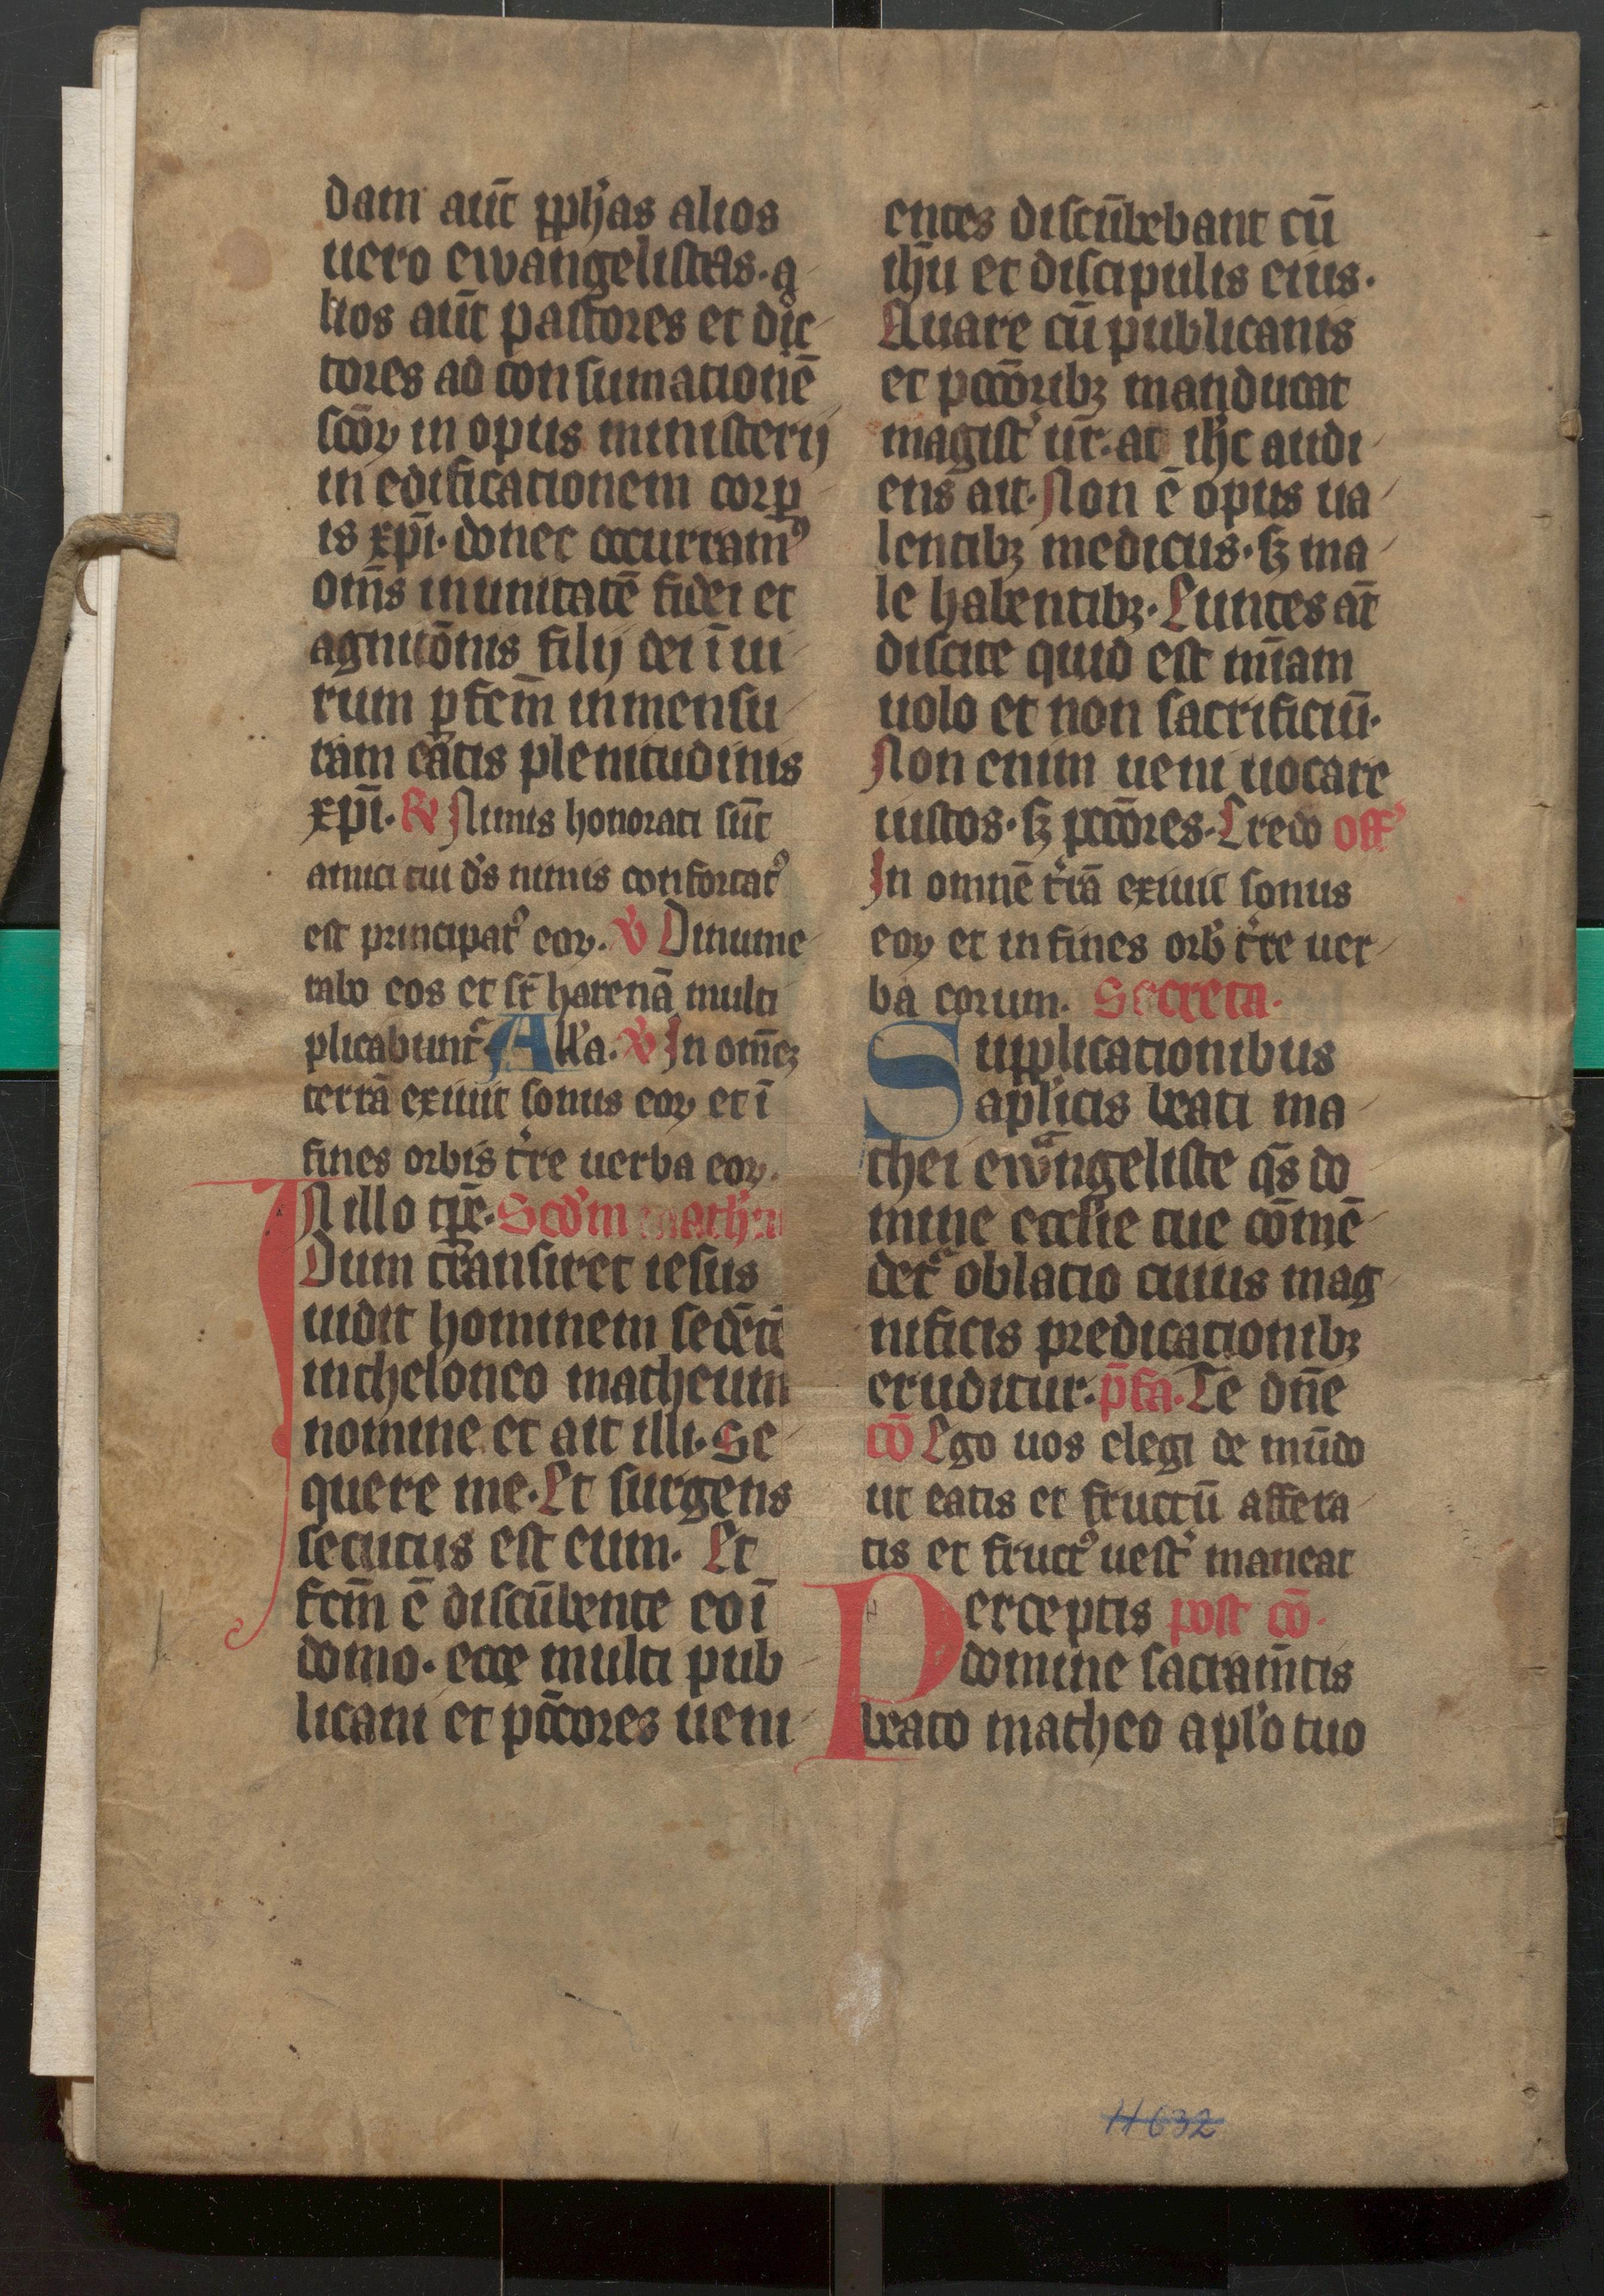 dam aūt ꝓph̄as alios
uero ewangelistas. a
lios aūt pastores et doc
tores ad consumationē
sc̄oꝝ in opus ministerij
in edificationem corꝑ
is xp̄i. donec occurramꝰ
om̄s in unitatē fidei et
agnitōnis filij dei ī ui
rum ꝑfcm̄ in mensu
ram etatis plenitudinis
xp̄i. ℟ Nimis honorati sūt
amici tui ds̄ nimis confortatꝰ
est principatꝰ eoꝝ. ℣ Dinume
rabo eos et sr̄ harenā multi
plicabunt᷑ All'a. ℣ In om̄eꝫ
terrā exiuit sonus eoꝝ et ī
fines orbis t're uerba eoꝝ.
In illo tp̄re. Scd'm math'm
Dum transiret iesus
uidit hominem sedētē
in theloneo matheum
nomine et ait illi. Se
quere me. Et surgens
secutus est eum. Et
fcm̄ ē discūbente eo ī
domo. ecce multi pub
licani et pc̄cores ueni
entes discūbebant cū
ihū et discipulis eius.
Quare cū publicanis
et pccōribꝫ manducat
magist' ur̄. at ih̄c audi
ens ait. Non ē opus ua
lentibꝫ medicus. sꝫ ma
le habentibꝫ. Euntes at̄
discite quid est mīam
uolo et non sacrificiū.
Non enim ueni uocare
iustos. sꝫ pccōres. Credo off'
In omnē t'rā exiuit sonus
eoꝝ et in fines orb' t're uer
ba eorum. Secreta.
Supplicationibus
apl'icis beati ma
thei ewāngeliste q̄s do
mine eccl'ie tue cōmē
det᷑ oblatio cuius mag
nificis predicationibꝫ
eruditur. p̄fa. Te dn̄e
cō Ego uos elegi de mūdo
ut eatis et fructū affera
tis et fructꝰ uest' maneat
Perceptis post cō.
domine sacram̄tis
beato matheo apl'o tuo
H 632